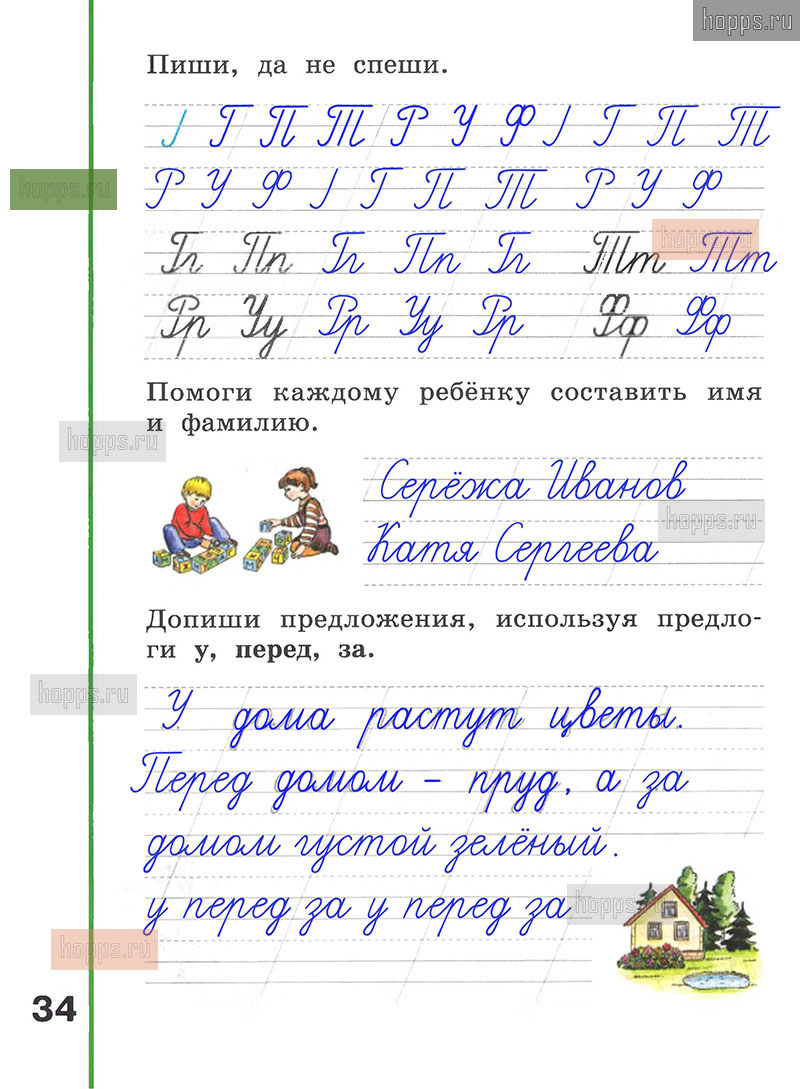 hopps.ru
Пиши, да не спеши.
Г П Т Р У Ф Г П Т
hopps.ru
Р У Ф Г П Т Р У Ф
hopps.ru
Гг Пп Гг Пп Гг Тт Тт
Рр Уу Рр Уу Рр Фф Фф
Помоги каждому ребёнку составить имя
и фамилию.
hopps.ru
Серёжа Иванов
hopps.ru
Катя Сергеева
Допиши предложения, используя предло-
ги у, перед, за.
hopps.ru
У дома растут цветы.
Перед домом – пруд, а за
домом густой зелёный.
у перед за у перед за
hopps.ru
hopps.ru
34